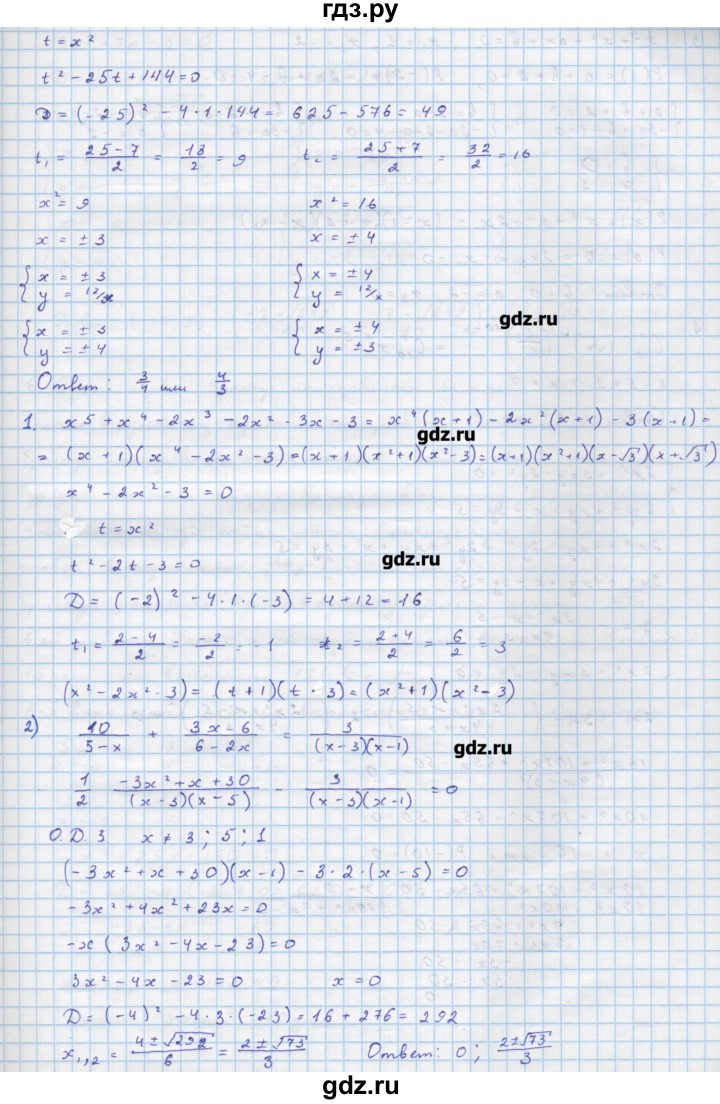 гдз.ру
t = x²
t² - 25t + 144 = 0
D = (-25)² - 4·1·144 = 625 - 576 = 49
t₁ = (25-7)/2 = 18/2 = 9    t₂ = (25+7)/2 = 32/2 = 16
x² = 9    x² = 16
x = ±3    x = ±4
{ x = ±3    { x = ±4
{ y = 12/x    { y = 12/x
{ x = ±3    { x = ±4
{ y = ±4    { y = ±3
gdz.ru
Ответ: 3/4 или 4/3
1. x5 + x⁴ - 2x³ - 2x² - 3x - 3 = x⁴(x+1) - 2x²(x+1) - 3(x+1) =
gdz.ru
= (x+1)(x⁴ - 2x² - 3) = (x+1)(x²+1)(x²-3) = (x+1)(x²+1)(x-√3)(x+√3)
x⁴ - 2x² - 3 = 0
t = x²
gdz.ru
t² - 2t - 3 = 0
D = (-2)² - 4·1·(-3) = 4 + 12 = 16
t₁ = (2-4)/2 = -2/2 = -1    t₂ = (2+4)/2 = 6/2 = 3
(x² - 2x² - 3) = (t+1)(t · 3) = (x²+1)(x²-3)
2) 10/(5-x) + (3x-6)/(6-2x) = 3/((x-3)(x-1))
gdz.ru
1/2 (-3x²+x+30)/((x-3)(x-5)) - 3/((x-3)(x-1)) = 0
О.Д.З x ≠ 3; 5; 1
(-3x²+x+30)(x-1) - 3·2·(x-5) = 0
-3x² + 4x² + 23x = 0
-x(3x² - 4x - 23) = 0
3x² - 4x - 23 = 0    x = 0
D = (-4)² - 4·3·(-23) = 16 + 276 = 292
x₁,₂ = (4±√292)/6 = (2±√73)/3    Ответ: 0; (2±√73)/3
гдз.ру